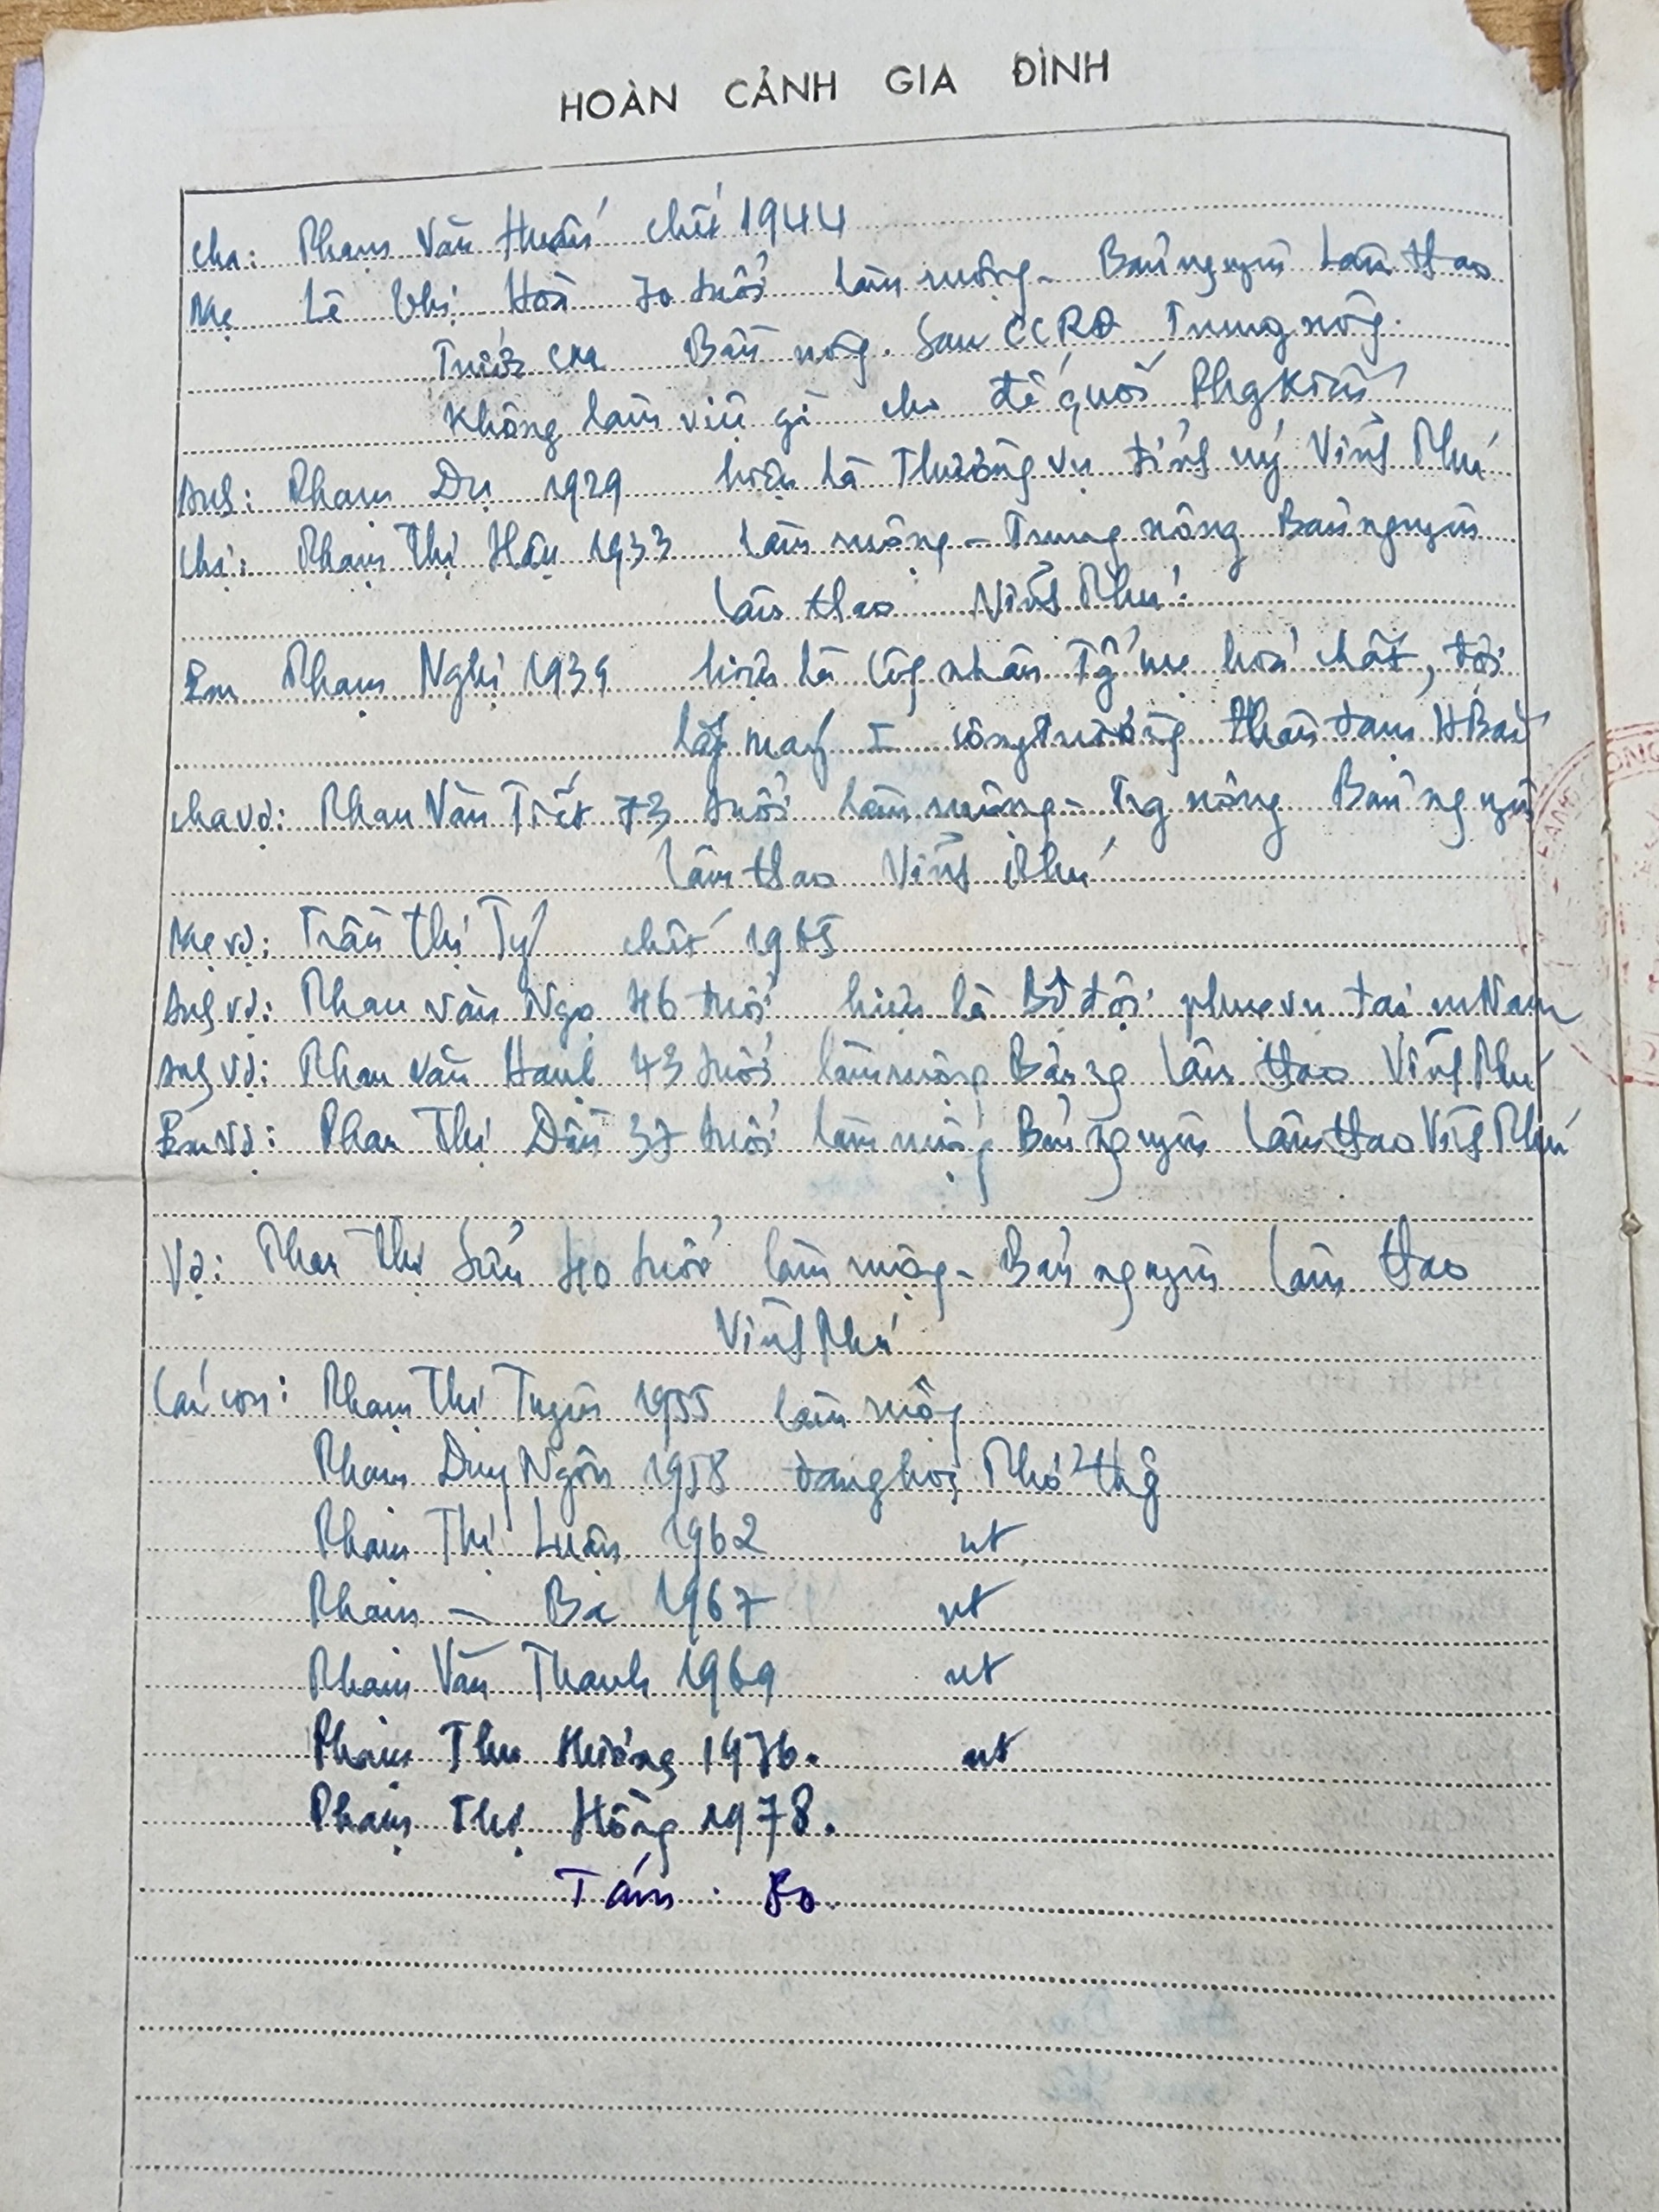 HOÀN CẢNH GIA ĐÌNH
Cha: Phạm Văn Huấn chết 1944
Mẹ Lê Thị Hoà 70 tuổi làm ruộng - Bản nguyên Lâm thao
Trước CM Bần nông. Sau CCRĐ Trung nông.
Không làm việc gì cho đế quốc Phg Kiến
Anh: Phạm Dụ 1929 hiện là Thường vụ tỉnh uỷ Vĩnh Phú
Chị: Phạm Thị Hậu 1933 làm ruộng - Trung nông Bản nguyên
Lâm thao Vĩnh Phú.
Em Phạm Nghị 1939 hiện là Công nhân Tg mẹ hoá chất, đội
lắp máy I công trường phân đạm H Bắc
Cha vợ: Phan Văn Tiết 73 tuổi làm ruộng - Trg nông Bản nguyên
Lâm thao Vĩnh Phú
Mẹ vợ: Trần Thị Tý chết 1965
Anh vợ: Phan Văn Ngọ 46 tuổi hiện là Bộ đội phục vụ tại m Nam
Anh vợ: Phan Văn Hanh 43 tuổi làm ruộng Bản ng Lâm thao Vĩnh Phú
Em vợ: Phan Thị Dần 37 tuổi làm ruộng Bản nguyên Lâm thao Vĩnh Phú
Vợ: Phan Thị Sửu 40 tuổi làm ruộng - Bản nguyên Lâm thao
Vĩnh Phú
Các con: Phạm Thị Tuyên 1955 làm ruộng
Phạm Duy Ngôn 1958 đang học Phổ thg
Phạm Thị Luận 1962 nt
Phạm — Ba 1967 nt
Phạm Văn Thanh 1969 nt
Phạm Thu Hương 1976. nt
Phạm Thị Hồng 1978.